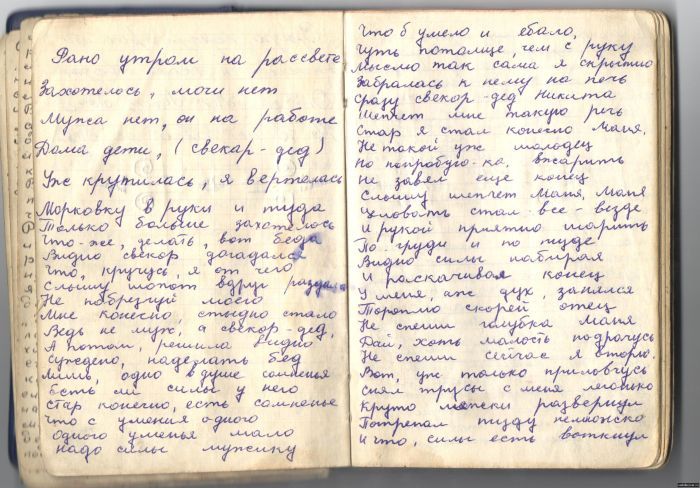 Рано утром на рассвете
Захотелось, мочи нет
Мужа нет, он на работе
Дома дети, (свекар-дед)
Уж крутилась, я вертелась
Морковку в руки и туда
Только больше захотелось
Что-же, делать, вот беда
Видно свекор догадался
Что, кручусь, я от чего
Слышу шопот вдруг раздался
Не побрезгуй моего
Мне конечно, стыдно стало
Ведь не муж, а свекор-дед,
А потом, решила видно
Суждено, наделать бед
Лишь, одно в душе сомненья
Есть ли силы у него
Стар конечно, есть сомненье
Что с уменья одного
Одного уменья мало
Надо силы мужику
Что б умело и ебало,
Чуть потолще, чем с руку
Мыслю так сама я скрытно
Забралась к нему на печь
Сразу свекор-дед Никита
Шепчет мне такую речь
Стар я стал конечно Маня,
Не такой уж молодец
Но попробую-ка, вжарить
Не завял еще конец
Слышу шепчет Маня, Маня
Целовать стал все-везде
И рукой приятно шарить
По груди и по пизде
Видно силы набирая
И раскачивая конец
У меня, аж дух, занялся
Тороплю скорей отец
Не спеши голубка Маня
Дай, хоть малость подрочусь
Не спеши сейчас я
Вот, уж только приловчусь
Снял трусы с меня легонько
Круто ляжски развернул
Потрепал пизду немножко
И что, силы есть воткнул